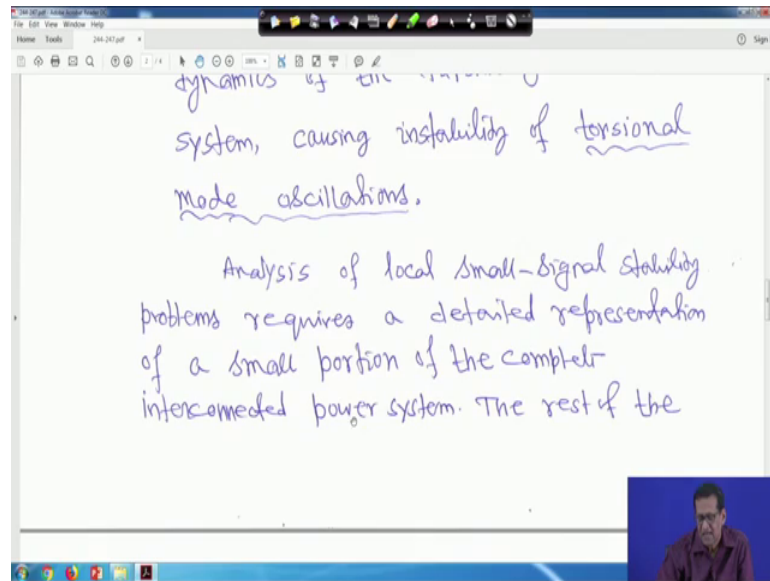 244-247.pdf - Adobe Acrobat Reader DC
File Edit View Window Help
Home Tools 244-247.pdf × Sign
2 / 4
dynamics of the
system, causing instability of torsional
mode oscillations.
Analysis of local small-signal stability
problems requires a detailed representation
of a small portion of the complete
interconnected power system. The rest of the